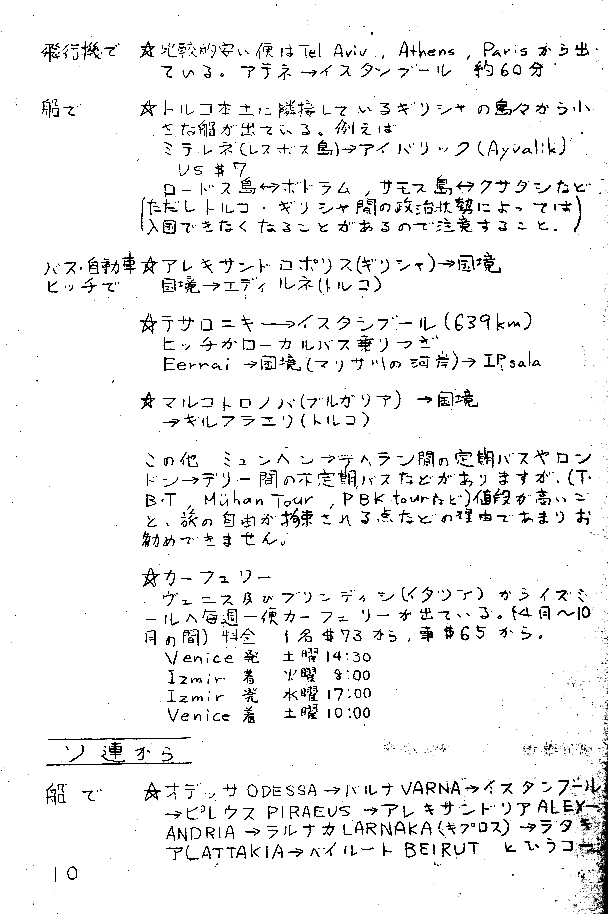 飛行機で ☆比較的安い便はTel Aviv, Athens, Parisから出
ている。アテネ→イスタンブール 約60分
船で ☆トルコ本土に隣接しているギリシャの島々から小
さな船が出ている。例えば
ミテレネ(レスボス島)→アイバリック(Ayvalik)
US$7
ロードス島↔ボドラム, サモス島↔クサダシなど
(ただしトルコ・ギリシャ間の政治状勢によっては
入国できなくなることがあるので注意すること.)
バス・自動車 ☆アレキサンドロポリス(ギリシャ)→国境
ヒッチで 国境→エディルネ(トルコ)
☆テサロニキー→イスタンブール(639km)
ヒッチかローカルバス乗りつぎ
Eernai→国境(マリサ川の河岸)→IPsala
☆マルコトロノバ(ブルガリア)→国境
→ギルフラエリ(トルコ)
この他 ミュンヘン→テヘラン間の定期バスやロン
ドン→デリー間の不定期バスなどがありますが,(T.
B.T, Mühan Tour, PBK tourなど)値段が高いこ
と、旅の自由が拘束される点などの理由であまりお
勧めできません。
☆カーフェリー
ヴェニス及びブリンディシ(イタリア)からイズミ
ールへ毎週一便カーフェリーが出ている。(4月〜10
月の間) 料金 1名$73から, 車$65から.
Venice 発 土曜14:30
Izmir 着 火曜 8:00
Izmir 発 水曜17:00
Venice 着 土曜10:00
ソ連から
船で ☆オデッサODESSA→バルナVARNA→イスタンブール
→ピレウスPIRAEUS→アレキサンドリアALEX-
ANDRIA→ラルナカLARNAKA(キプロス)→ラタキ
アLATTAKIA→ベイルートBEIRUT というコー
10